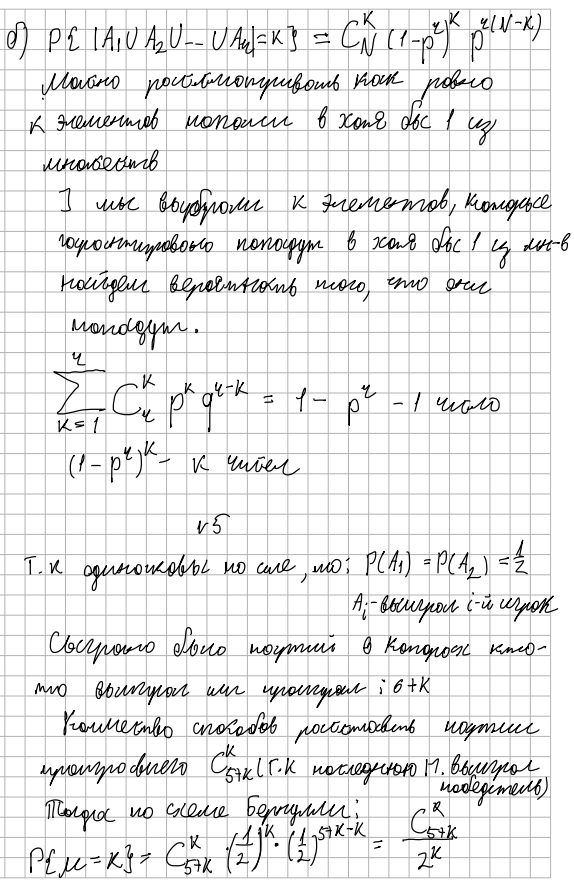 б) P{|A₁∪A₂∪...∪Aᵣ|=к} = C_N^к (1-p^r)^к p^{r(N-к)}
Можно рассматривать как ровно
к элементов попали в хотя бы 1 из
множеств
] мы выбрали к элементов, которые
гарантировано попадут в хотя бы 1 из мн-в
Найдем вероятность того, что они
попадут.
∑_{к=1}^{r} C_r^к p^к q^{r-к} = 1 - p^r - 1 число
(1-p^r)^к - к чисел
№5
Т.к одинаковы по силе, то: P(A₁) = P(A₂) = 1/2
Aᵢ-выиграл i-й игрок
Сыграно было партий в которых кто-
то выиграл или проиграл : 6+к
Количество способов расставить партии
проигравшего C_{5+к}^к (Т.к последнюю п. выиграл
победитель)
Тогда по схеме Бернулли:
P{μ=к} = C_{5+к}^к · (1/2)^к · (1/2)^{5+к-к} = C_{5+к}^к / 2^к